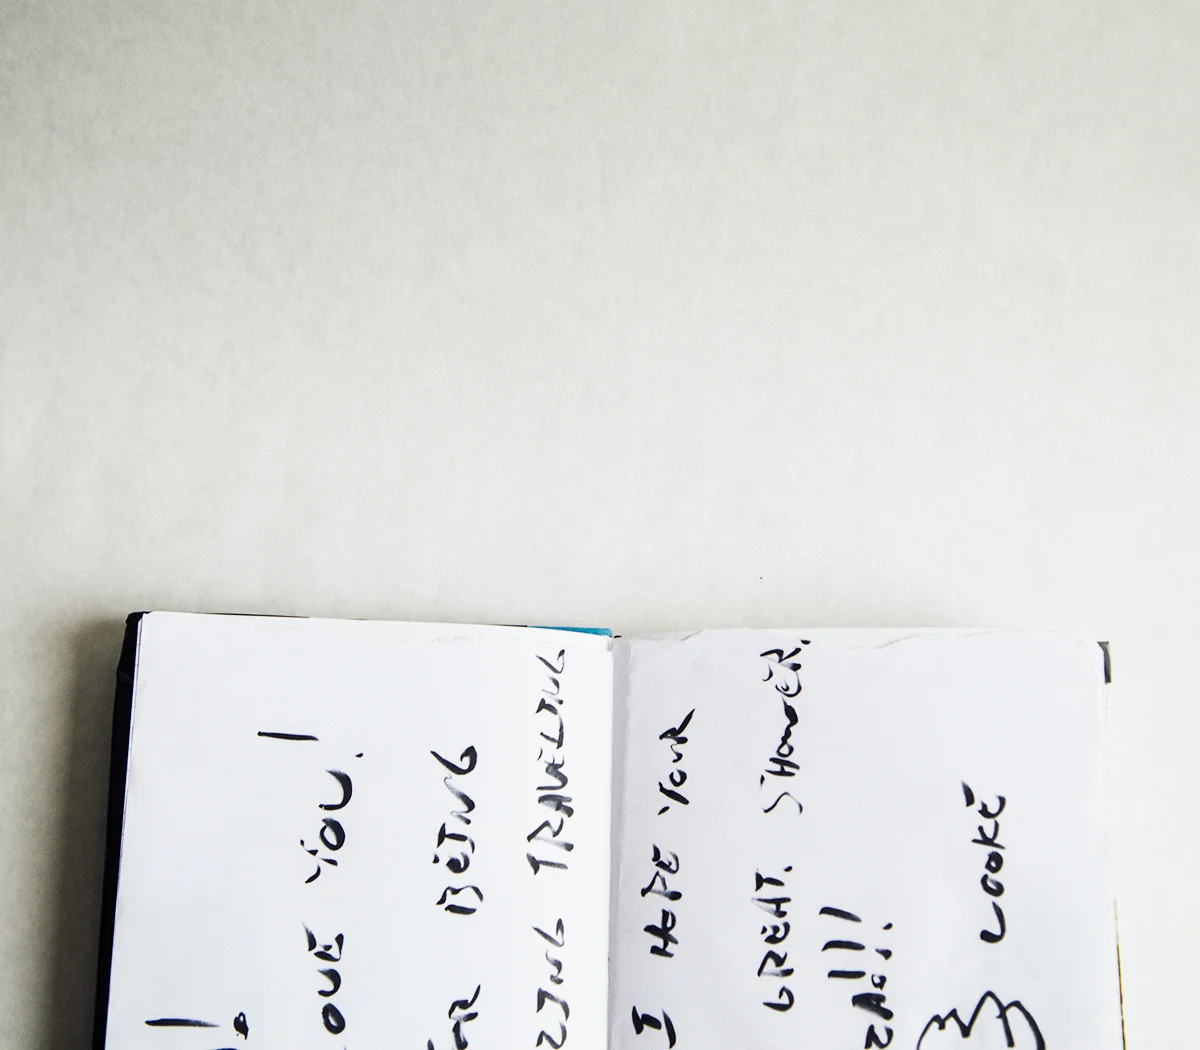 !
OVE YOU!
FOR BEING
ZING TRAVELING
I HOPE YOUR
GREAT. SHOWER.
!!!
LOOKE